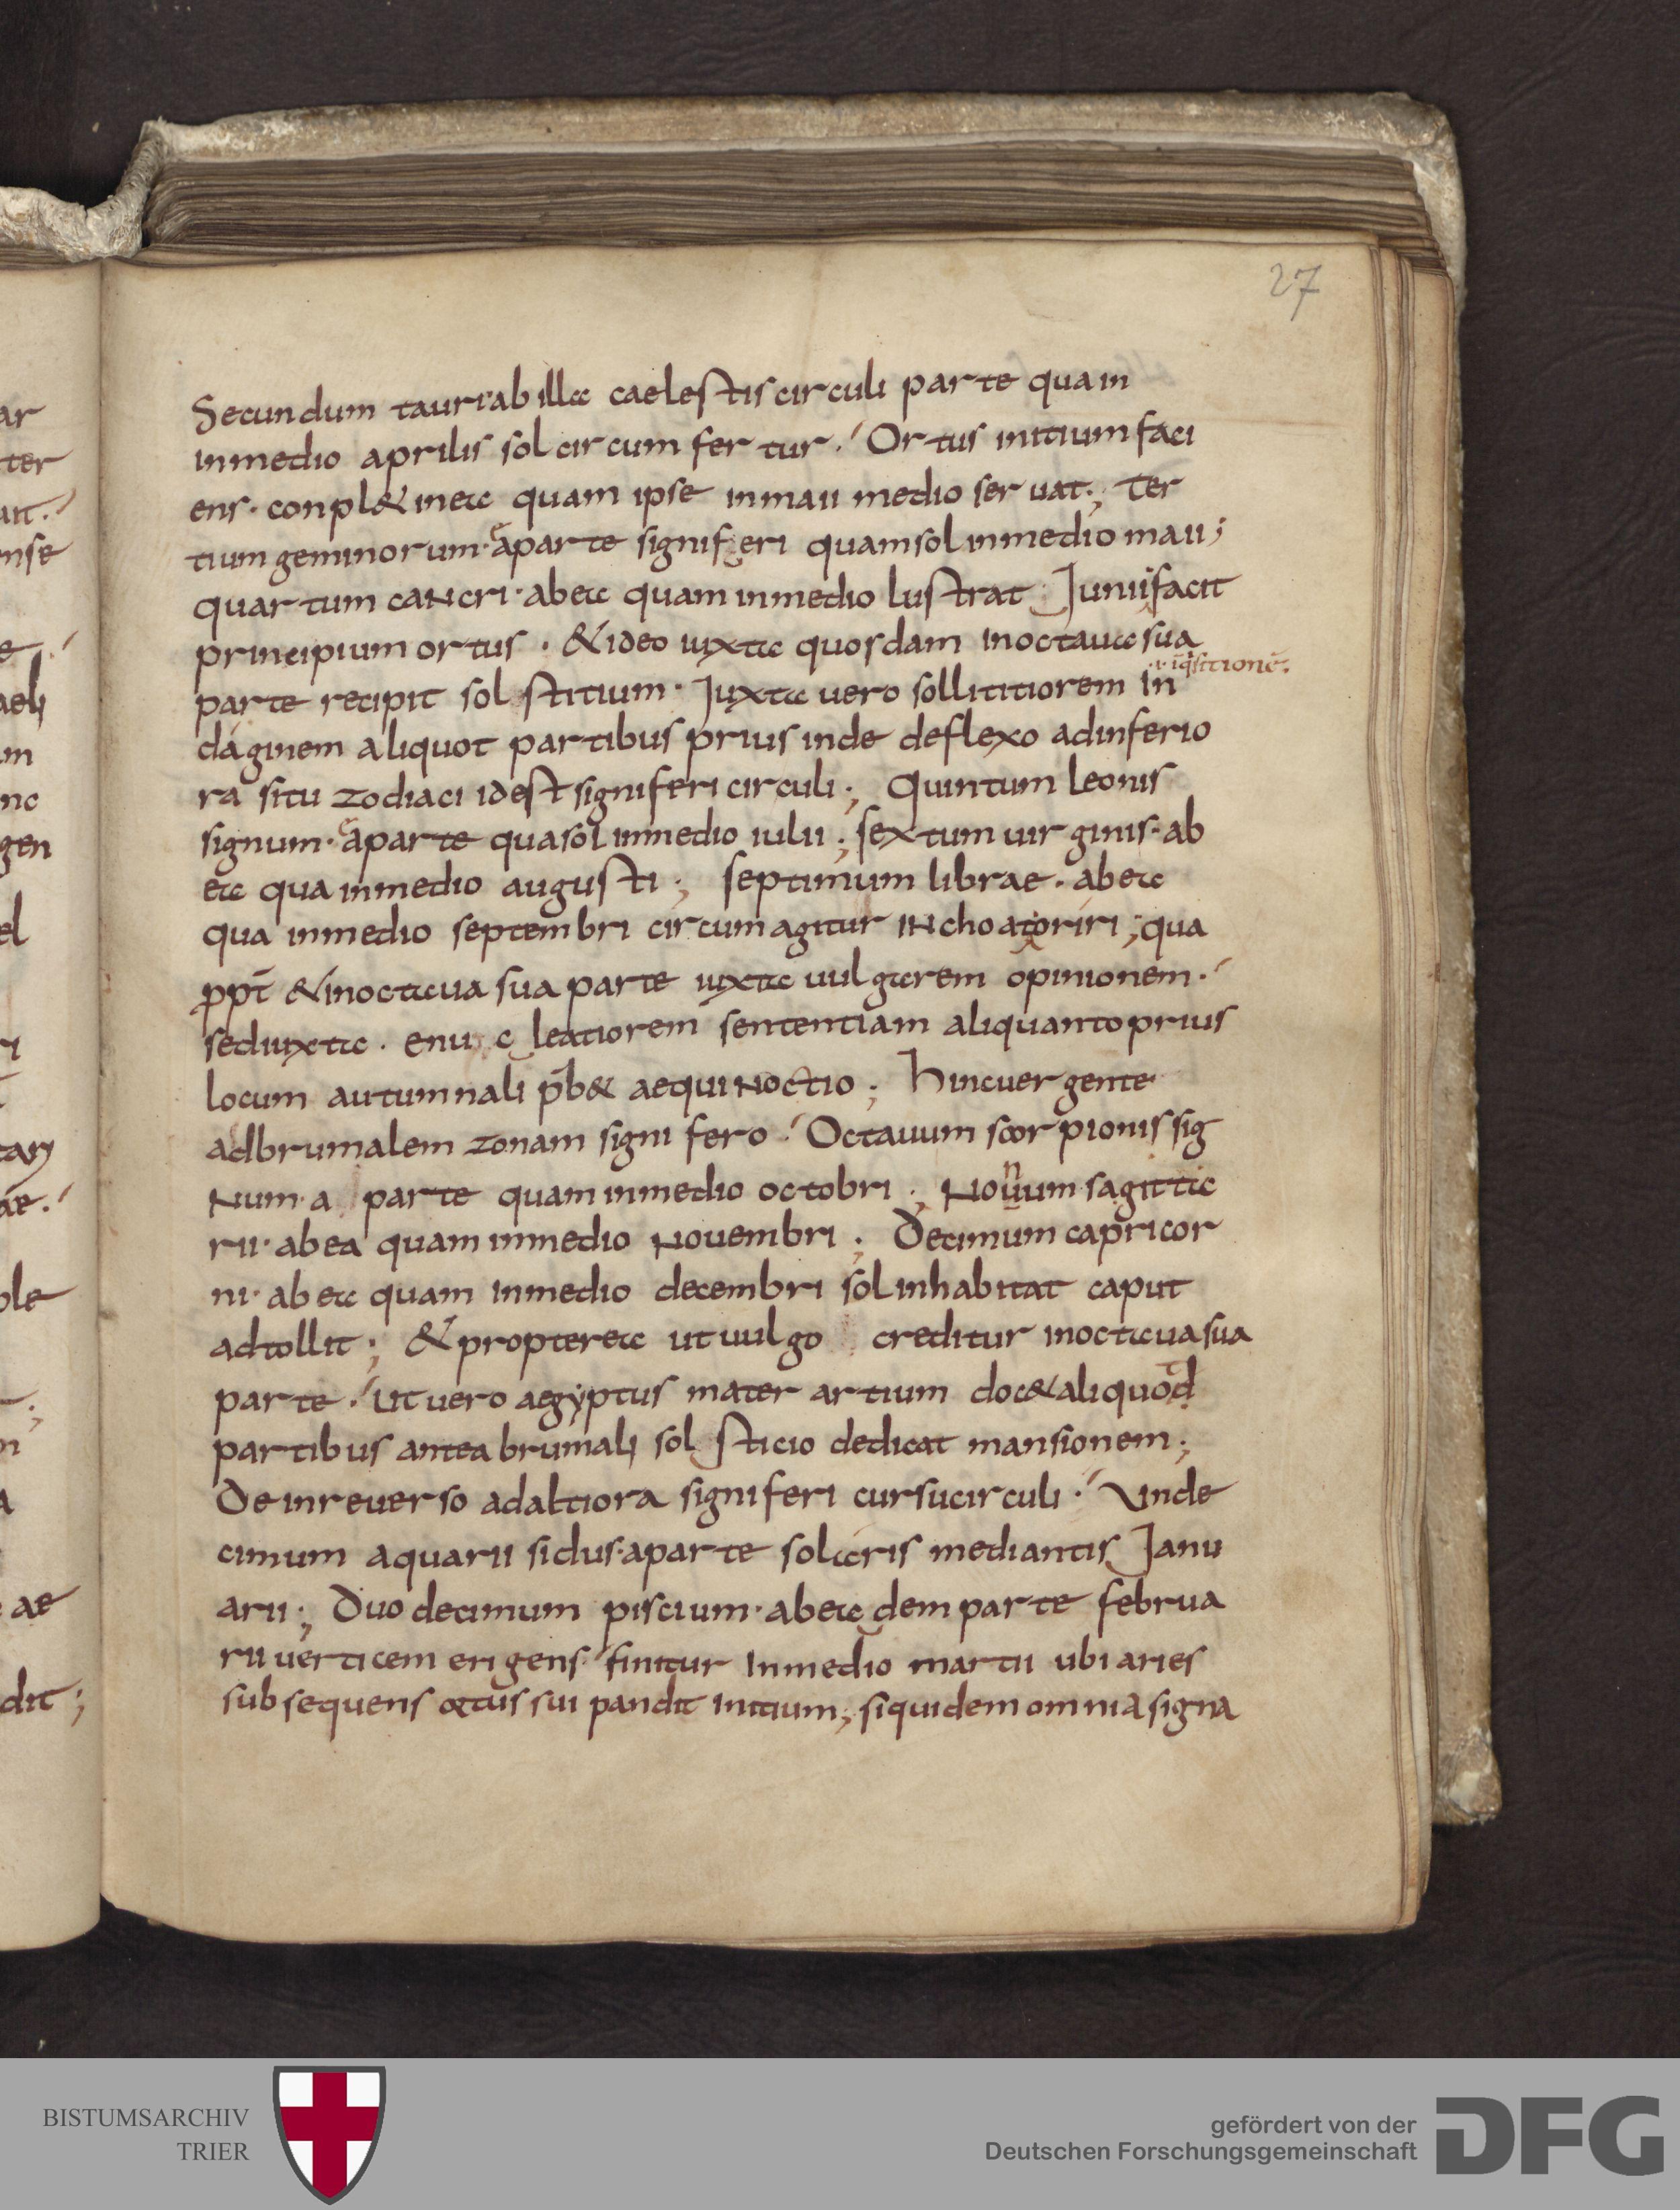 27
Secundum tauri· ab illa caelestis circuli parte quam
in medio aprilis sol circumfertur·́ Ortus initium faci
ens· conpl& in ea quam ipse in maii medio seruat·; Ter
tium geminorum· a parte signiferi quam sol in medio maii;
quartum caNcri· ab ea quam in medio lustrat Junii facit
principium ortus · & ideo iuxta quosdam in octaua sua
parte recipit solstitium· Juxta uero sollititiorem in
·i· iq̄sitionē·
daginem aliquot partibus prius inde deflexo ad inferio
ra situ zodiaci id est signiferi circuli·; Quintum leonis
signum· a parte qua sol in medio iulii·; sextum uirginis· ab
ea qua in medio augusti·; septimum librae· ab ea
qua in medio septembri circumagitur iNchoat oriri·; qua
ꝓpt̄ & in octaua sua parte iuxta uulgarem opinionem·́
sed iuxta · enucleatiorem sententiam aliquanto prius
locum autumnali p̄b& aequiNoctio·; Hinc uergente
ad brumalem zonam signifero·́ Octauum scorpionis sig
Num· a parte quam in medio octobri·; Nonum sagitta
rii· ab ea quam in medio Nouembri·; Decimum capricor
ni· ab ea quam in medio decembri sol inhabitat caput
adtollit·; & propterea ut uulgo creditur in octaua sua
parte·́ Ut uero aegyptus mater artium doc& aliquod
partibus antea brumali solsticio dedicat mansionem·;
Dein reuerso ad altiora signiferi cursu circuli·́ Unde
cimum aquarii sidus· a parte solaris mediantis Janu
arii·; Duodecimum piscium· ab eadem parte februa
rii uerticem erigens·́ finitur in medio martii ubi aries
subsequens ortus sui pandit initium·; siquidem omnia signa
ar
ter
nse
aeli
nc
gen
el
ae·́
ole
ae
dit;
BISTUMSARCHIV
TRIER
gefördert von der
Deutschen Forschungsgemeinschaft
DFG